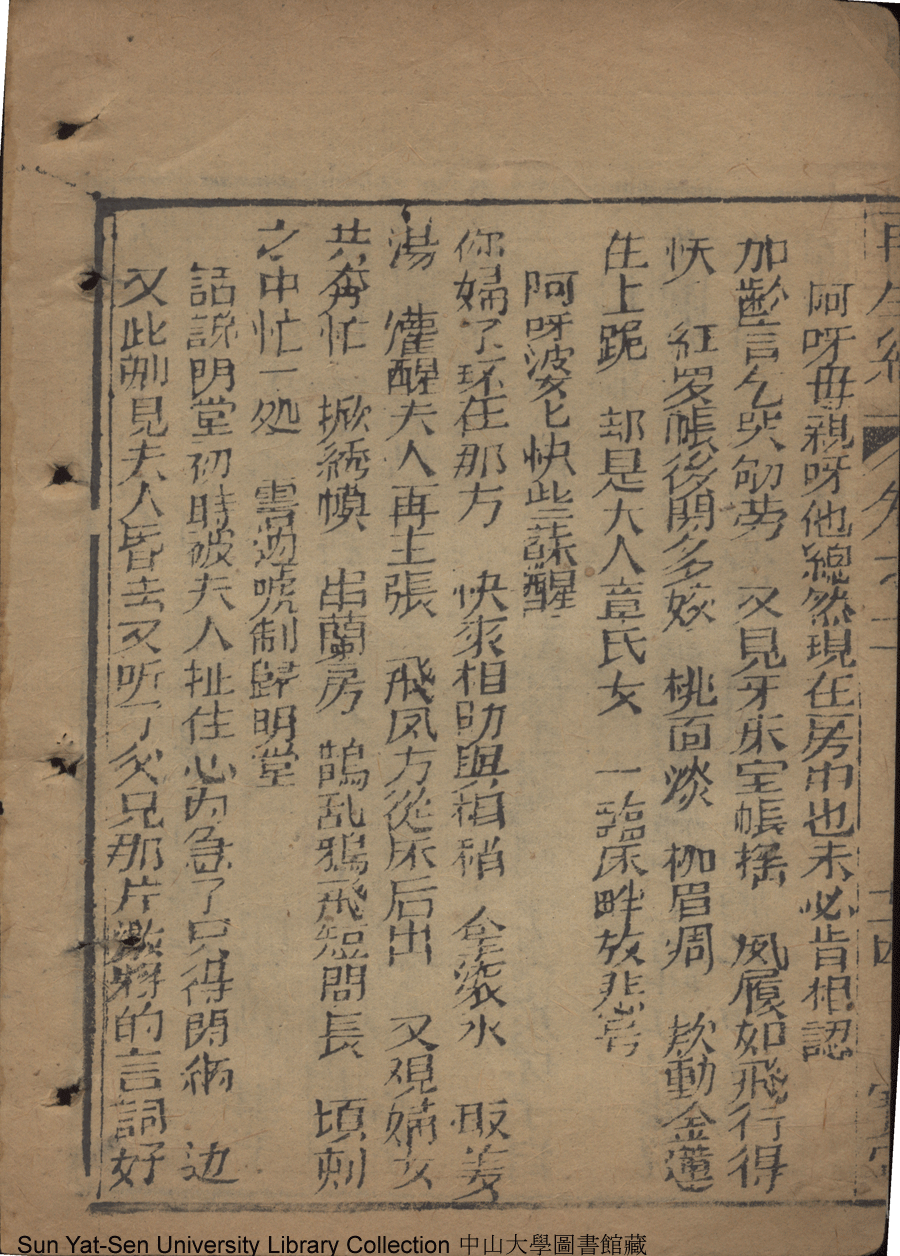 再生緣
阿呀母親呀他總然現在房中也未必肯相認
加齡言乞哭劬劳　又見牙床宝帳摇　凤履如飛行得
快　紅罗帳後閃多姣　桃面淡　柳眉凋　款動金蓮
往上跪　却是大人章氏女　一臨床畔放悲号
阿呀婆匕快些蘇醒
你婦了环在那方　快來相助與相稍　全滚水　取姜
湯　灌醒夫人再主張　飛凤方從床后出　又观媾女
共奔忙　掀綉幙　串蘭房　鵲乱鴉飛短問長　頃刻
之中忙一处　雪边唬制歸明堂
話說明堂初時被夫人扯住心内急了只得閉緉　边
又此刻見夫人昏去又听了父兄那片激将的言詞好
Sun Yat-Sen University Library Collection 中山大學圖書館藏